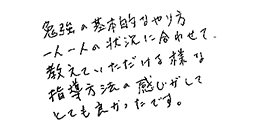 勉強の基本的なやり方
一人一人の状況に合わせて、
教えていただける様な
指導方法の感じがして
とても良かったです。